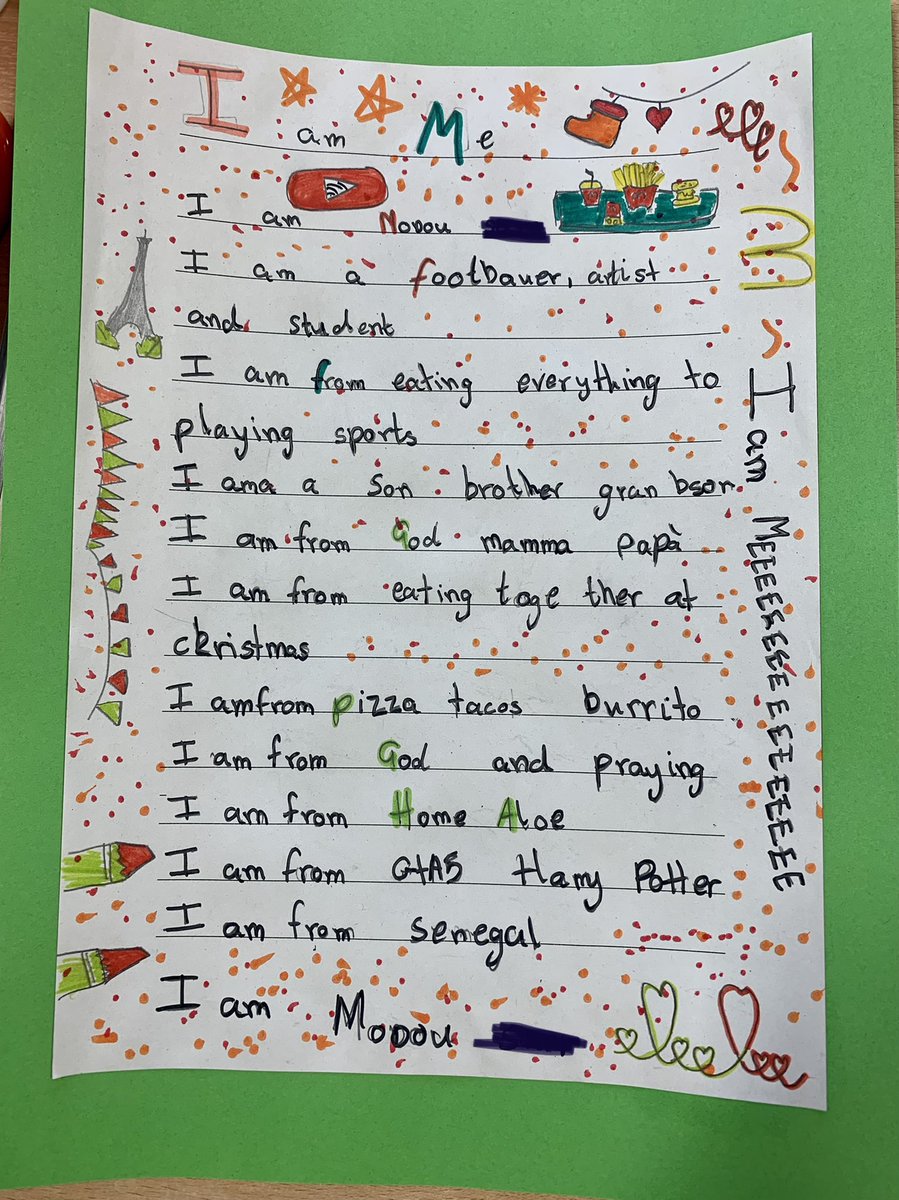 I am Me
I am Modou
I am a footbauer, artist
and student
I am from eating everything to
playing sports
I ama a son brother gran bson
I am from God mamma papà
I am from eating toge ther at
christmas
I amfrom pizza tacos burrito
I am from God and praying
I am from Home Aloe
I am from GTA5 Harry Potter
I am from senegal
I am Modou
I am MEEEEEEEEEEEEEEEEE